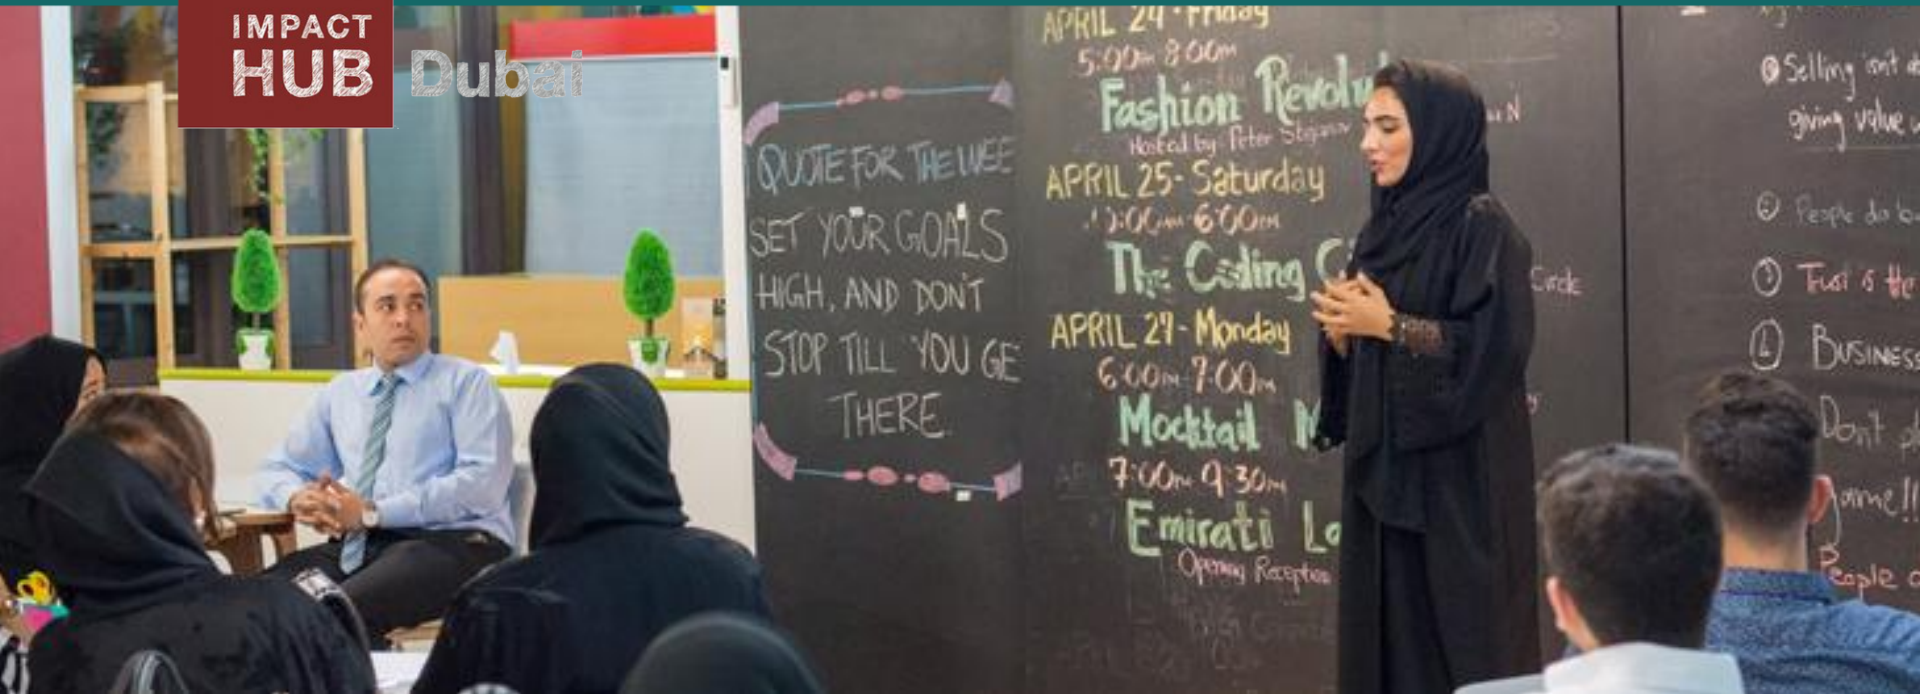 IMPACT
HUB Dubai
QUOTE FOR THE WEE
SET YOUR GOALS
HIGH, AND DON'T
STOP TILL YOU GE
THERE.
APRIL 24 - Friday
5:00pm 8:00pm
Fashion Revolu
Hosted by: Peter
APRIL 25 - Saturday
6:00pm
The Coding C
Circle
APRIL 27 - Monday
6:00pm 7:00pm
Mocktail M
7:00pm 9:30pm
Emirati Lo
Opening Reception
Selling isn't ab
giving value w
② People do bu
③ Trust is the
④ BUSINESS
Don't pl
game!!
People a